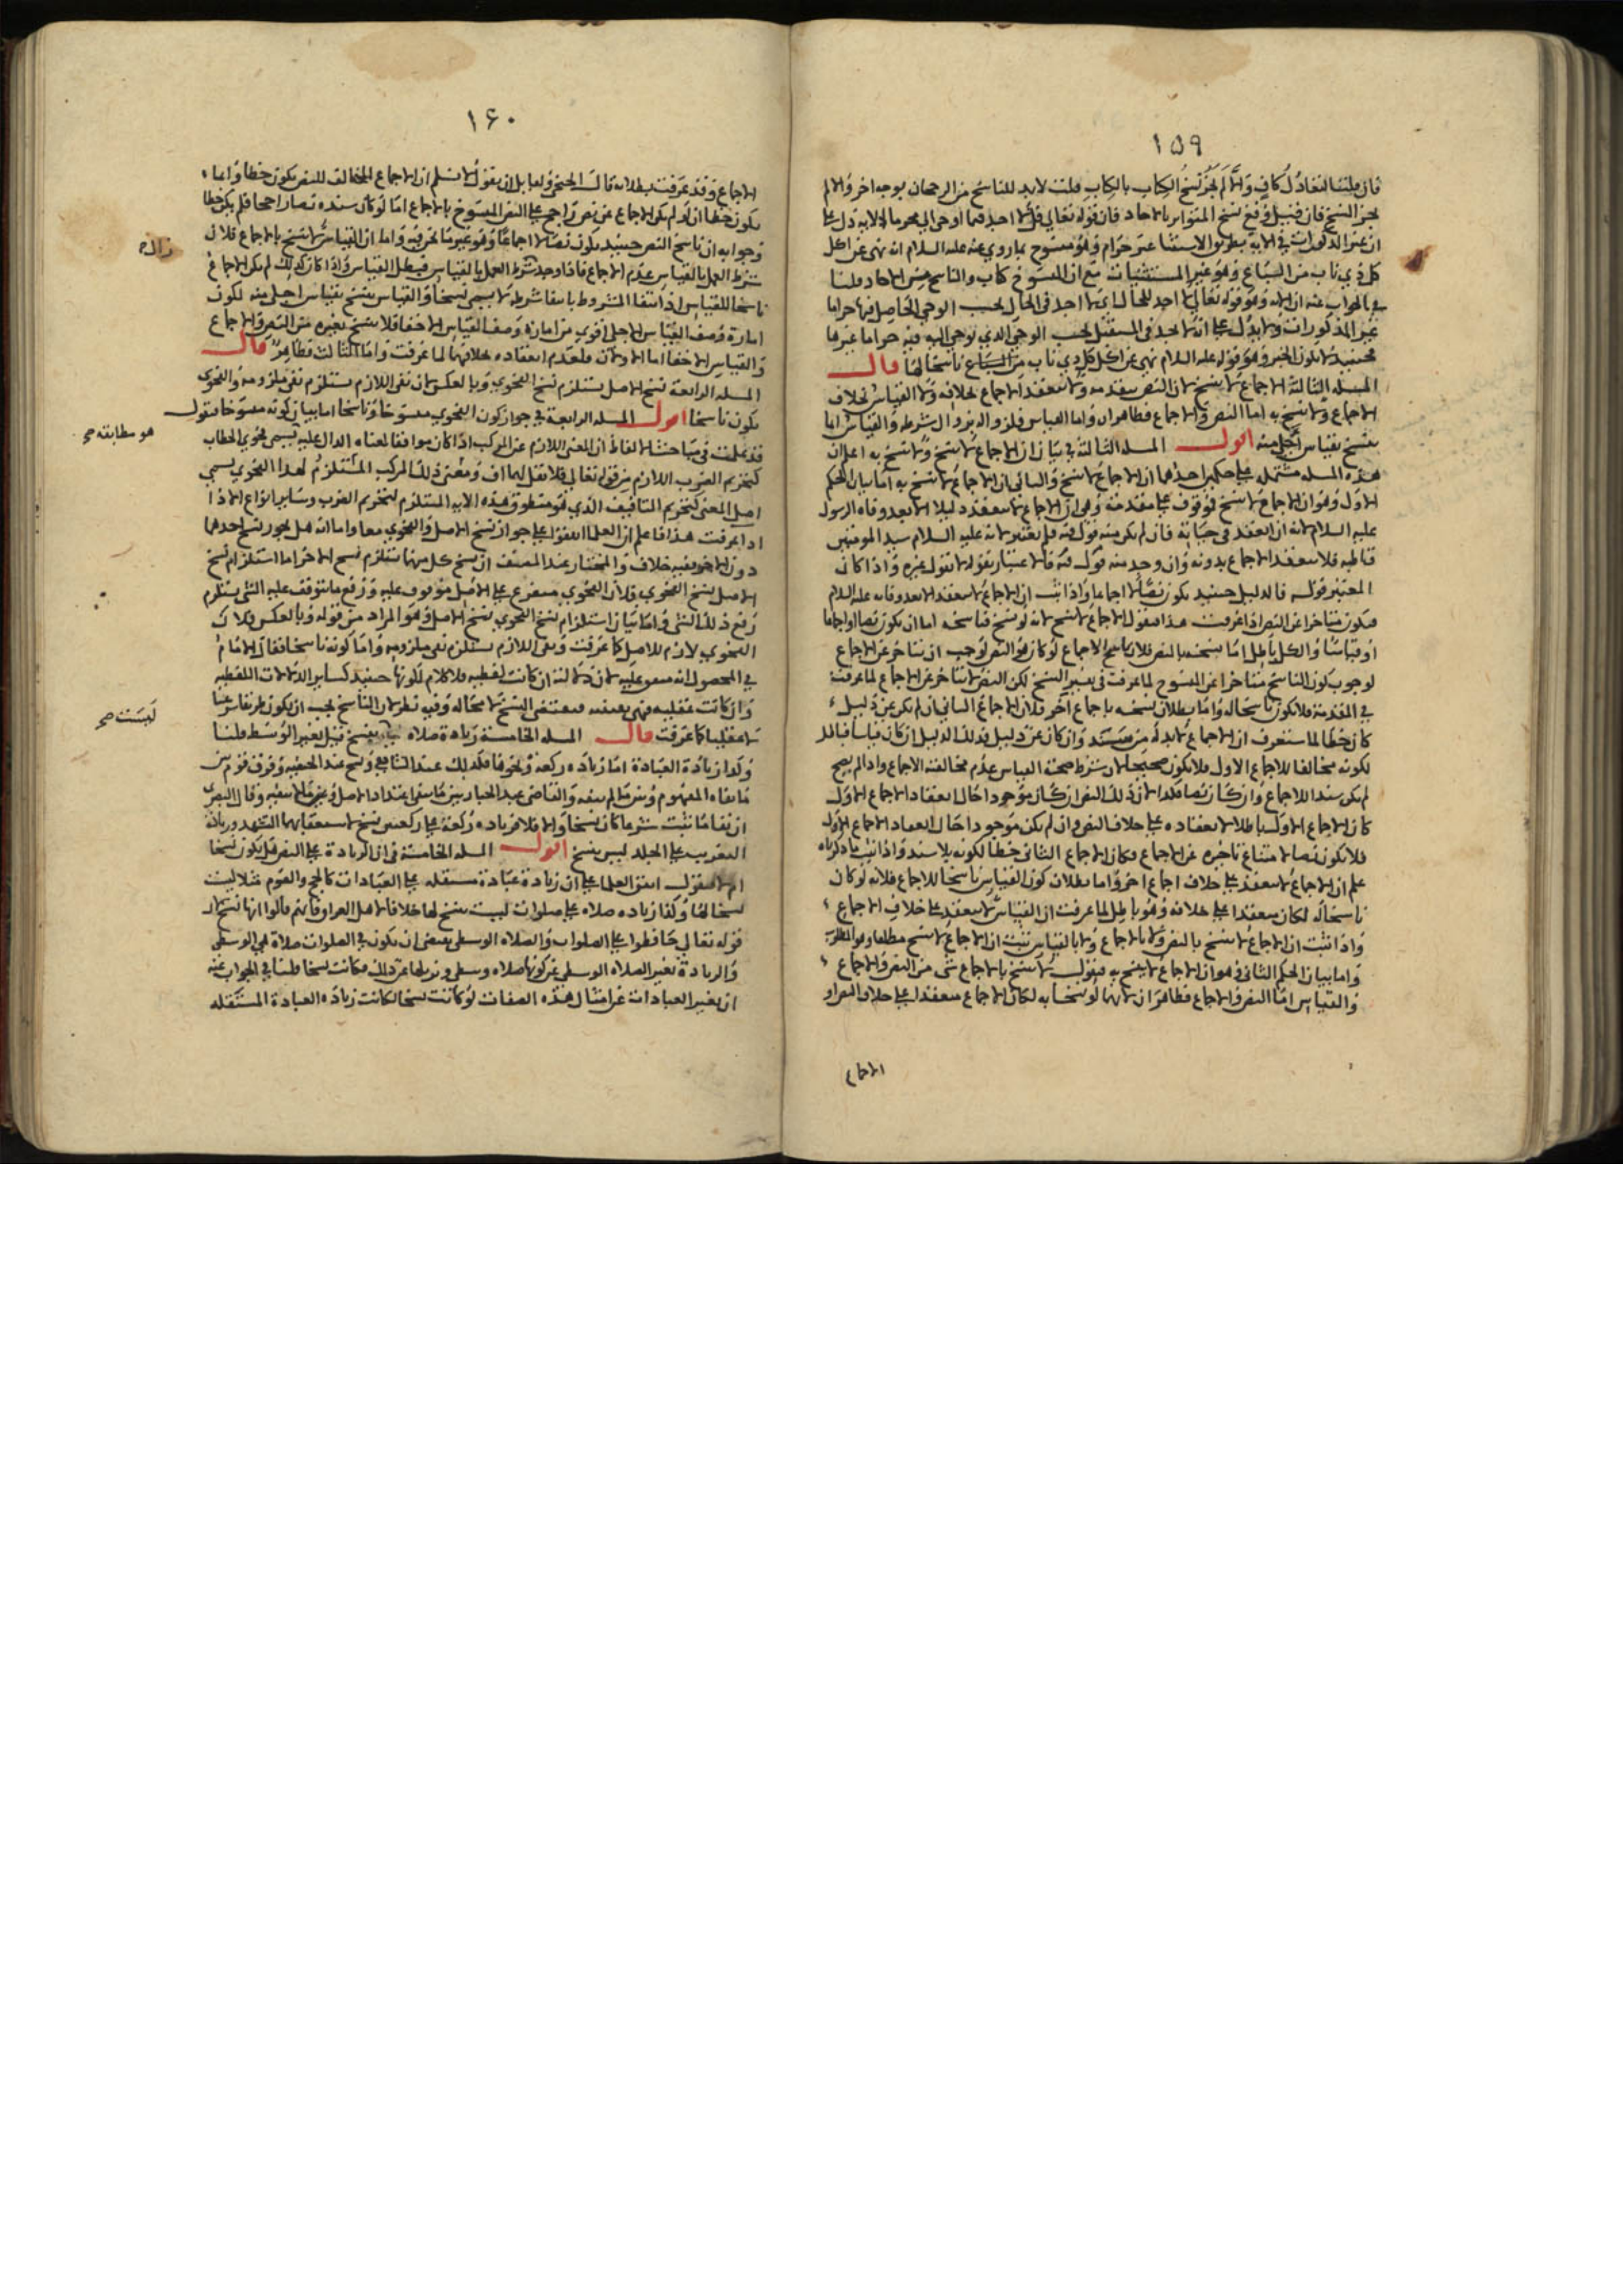 ١٥٩
فان قلنا التعادل كاف والا لم يجز نسخ الكتاب بالكتاب قلت لابد للناسخ من الرجحان بوجه اخر والا لم
يجز النسخ فان قيل وقع نسخ المتواتر بالاحاد فان قوله تعالى قل لا اجد فيما اوحى الي محرما الاية دل على
ان غير المذكورات في الاية بطريق الاستثنا غير حرام وهو منسوخ بما روي عنه عليه السلام انه نهى عن اكل
كل ذي ناب من السباع وهو غير المستثنيات مع ان المنسوخ كتاب والناسخ من الاحاد قلنا
في الجواب عنه ان الاية وهو قوله تعالى لا اجد للحال اي لا اجد في الحال بحسب الوحي الحاصل فيها حراما
غير المذكورات ولا يدل على انه لا يجد في المستقبل بحسب الوحي الذي يوحى اليه فيه حراما غيرها
فحينئذ لا يكون الخبر وهو قوله عليه السلام نهي عن اكل كل ذي ناب من السباع ناسخا لها قال
المسله الثالثة الاجماع لا ينسخ لان النص يتقدمه ولا ينعقد الاجماع بخلافه ولا القياس بخلاف
الاجماع ولا ينسخ به اما النص والاجماع فظاهران واما القياس فلزواله بزوال شرطه والقياس انما
ينسخ بقياس اجلى منه اقول المسله الثالثة في بيان ان الاجماع لا ينسخ ولا ينسخ به اعلم ان
هذه المسله مشتمله على حكمين احدهما ان الاجماع لا ينسخ والثاني ان الاجماع لا ينسخ به اما بيان الحكم
الاول وهو ان الاجماع لا ينسخ فموقوف على مقدمة وهي ان الاجماع لا ينعقد دليلا الا بعد وفاه الرسول
عليه السلام لانه ان انعقد في حياته فان لم يكن منه قول فيه فلم يعتبر لانه عليه السلام سيد المومنين
قاطبه فلا ينعقد الاجماع بدونه وان وجد منه قول فيه فالاعتبار بقوله لا بقول غيره واذا كان
المعتبر قوله فالدليل حينئذ يكون نصا لا اجماعا واذا ثبت ان الاجماع لا ينعقد الا بعد وفاته عليه السلام
فيكون متاخرا عن النص اذا عرفت هذا فنقول الاجماع لا ينسخ لانه لو نسخ فناسخه اما ان يكون نصا او اجماعا
او قياسا والكل باطل اما نسخه بالنص فلان ناسخ الاجماع لو كان هو النص لوجب ان يتاخر عن الاجماع
لوجوب كون الناسخ متاخرا عن المنسوخ لما عرفت في تفسير النسخ لكن النص لا يتاخر عن الاجماع لما عرفت
في المقدمة فلا يكون ناسخا له واما بطلان نسخه باجماع آخر فلان الاجماع الثاني ان لم يكن عن دليل
كان خطا لما ستعرف ان الاجماع لا بد له من مستند وان كان عن دليل فذلك الدليل ان كان قياسا فباطل
لكونه مخالفا للاجماع الاول فلا يكون صحيحا لان شرط صحة القياس عدم مخالفته الاجماع واذا لم يصح
لم يكن سندا للاجماع وان كان نصا فكذا لان ذلك النص ان كان موجودا حال انعقاد الاجماع الاول
كان الاجماع الاول باطلا لانعقاده على خلاف النص وان لم يكن موجودا حال انعقاد الاجماع الاول
فلا يكون نصا لامتناع تاخره عن الاجماع فكان الاجماع الثاني خطا لكونه بلا سند واذا ثبت ما ذكرناه
علم ان الاجماع لا ينعقد على خلاف اجماع اخر واما بطلان كون القياس ناسخا للاجماع فلانه لو كان
ناسخا له لكان منعقدا على خلافه وهو باطل لما عرفت ان القياس لا ينعقد على خلاف الاجماع
واذا ثبت ان الاجماع لا ينسخ بالنص ولا بالاجماع ولا بالقياس ثبت ان الاجماع لا ينسخ مطلقا وهو المطلوب
واما بيان الحكم الثاني وهو ان الاجماع لا ينسخ به فنقول لا ينسخ بالاجماع شي من النص والاجماع
والقياس اما النص والاجماع فظاهر ان لانهما لو نسخا به لكان الاجماع منعقدا على خلاف النص او
الاجماع
١٦٠
الاجماع وقد عرفت بطلانه قال الحنفي ولقايل ان يقول لا نسلم ان الاجماع المخالف للنص يكون خطا وانما
يكون خطا ان لو لم يكن الاجماع عن نص راجح على النص المنسوخ بالاجماع اما لو كان سنده نصا راجحا فلم يكن خطا
وجوابه ان ناسخ النص حينئذ يكون نصا لا اجماعا وهو غير ما نحن فيه واما ان القياس لا ينسخ بالاجماع فلان
شرط العمل بالقياس عدم الاجماع فاذا وجد شرط العمل بالقياس فيبطل القياس واذا كان كذلك لم يكن الاجماع
زال
ناسخا للقياس اذ انتفا المشروط بانتفا شرطه لا يسمى نسخا والقياس ينسخ بقياس اجلى منه لكون
امارة وصف القياس الاجلى اقوى من امارة وصف القياس الاخفا فلا ينسخ بغيره من النص والاجماع
والقياس الاخفا اما الاولان فلعدم انعقاده بخلافهما لما عرفت واما الثالث فظاهر قال
المسله الرابعة نسخ الاصل يستلزم نسخ الفحوى وبالعكس لان نفى اللازم يستلزم نفى ملزومه والفحوى
يكون ناسخا اقول المسله الرابعة في جواز كون الفحوى منسوخا وناسخا اما بيان كونه منسوخا فنقول
قد علمت في مباحث الالفاظ ان المعنى اللازم عن المركب اذا كان موافقا لمعناه الدال عليه يسمى فحوى الخطاب
هو مطابقته صح
كتحريم الضرب اللازم من قوله تعالى فلا تقل لهما اف ومعنى ذلك المركب المستلزم لهذا الفحوى يسمى
اصل المعنى كتحريم التافيف الذي هو منطوق هذه الاية المستلزم لتحريم الضرب وساير انواع الاذا
اذا عرفت هذا فاعلم ان العلما اتفقوا على جواز نسخ الاصل والفحوى معا واما انه هل يجوز نسخ احدهما
دون الاخر ففيه خلاف والمختار عند المصنف ان نسخ كل منهما يستلزم نسخ الاخر اما استلزام نسخ
الاصل نسخ الفحوى فلان الفحوى متفرع على الاصل متوقف عليه ورفع ما يتوقف عليه الشي يستلزم
رفع ذلك الشي واما بيان استلزام نسخ الفحوى نسخ الاصل وهو المراد من قوله وبالعكس فلان
الفحوى لازم للاصل كما عرفت ونفى اللازم يستلزم نفى ملزومه واما كونه ناسخا فقال الامام
في المحصول انه متفق عليه لان دلالته ان كانت لفظيه فلا كلام لكونها حينئذ كساير الدلالات اللفظيه
وان كانت عقليه فهي يقينيه فيقتضى النسخ لا محاله وفيه نظر لان الناسخ يجب ان يكون طريقا شرعيا
لا عقليا كما عرفت قال المسله الخامسة زيادة صلاه ليست بنسخ قيل يغير الوسط قلنا
ليست صح
وكذا زيادة العبادة اما زيادة ركعة ونحوها فكذلك عند الشافعي ونسخ عند الحنفيه وفرق قوم بين
ما نفاه المفهوم وبين ما لم ينفه والقاضي عبد الجبار بين ما ينفي اعتداد الاصل وبين ما لا ينفيه وقال البصري
ان نفا ما ثبت شرعا كان نسخا والا فلا فزيادة ركعة على ركعتين نسخ لاستعقابهما التشهد وزيادة
التغريب على الجلد ليس بنسخ اقول المسله الخامسة في ان الزيادة على النص هل يكون نسخا
ام لا فنقول اتفق العلما على ان زيادة عبادة مستقله على العبادات كالحج والصوم مثلا ليست
نسخا لها وكذا زيادة صلاه على صلوات ليست بنسخ لها خلافا لاهل العراق فانهم قالوا انها نسخ لان
قوله تعالى حافظوا على الصلوات والصلاه الوسطى يقتضى ان يكون في الصلوات صلاة هي الوسطى
والزيادة تغير الصلاه الوسطى عن كونها صلاه وسطى وتزيلها عن ذلك فكانت نسخا قلنا في الجواب عنه
ان تغير العبادات عن امثال هذه الصفات لو كانت نسخا لكانت زيادة العبادة المستقله